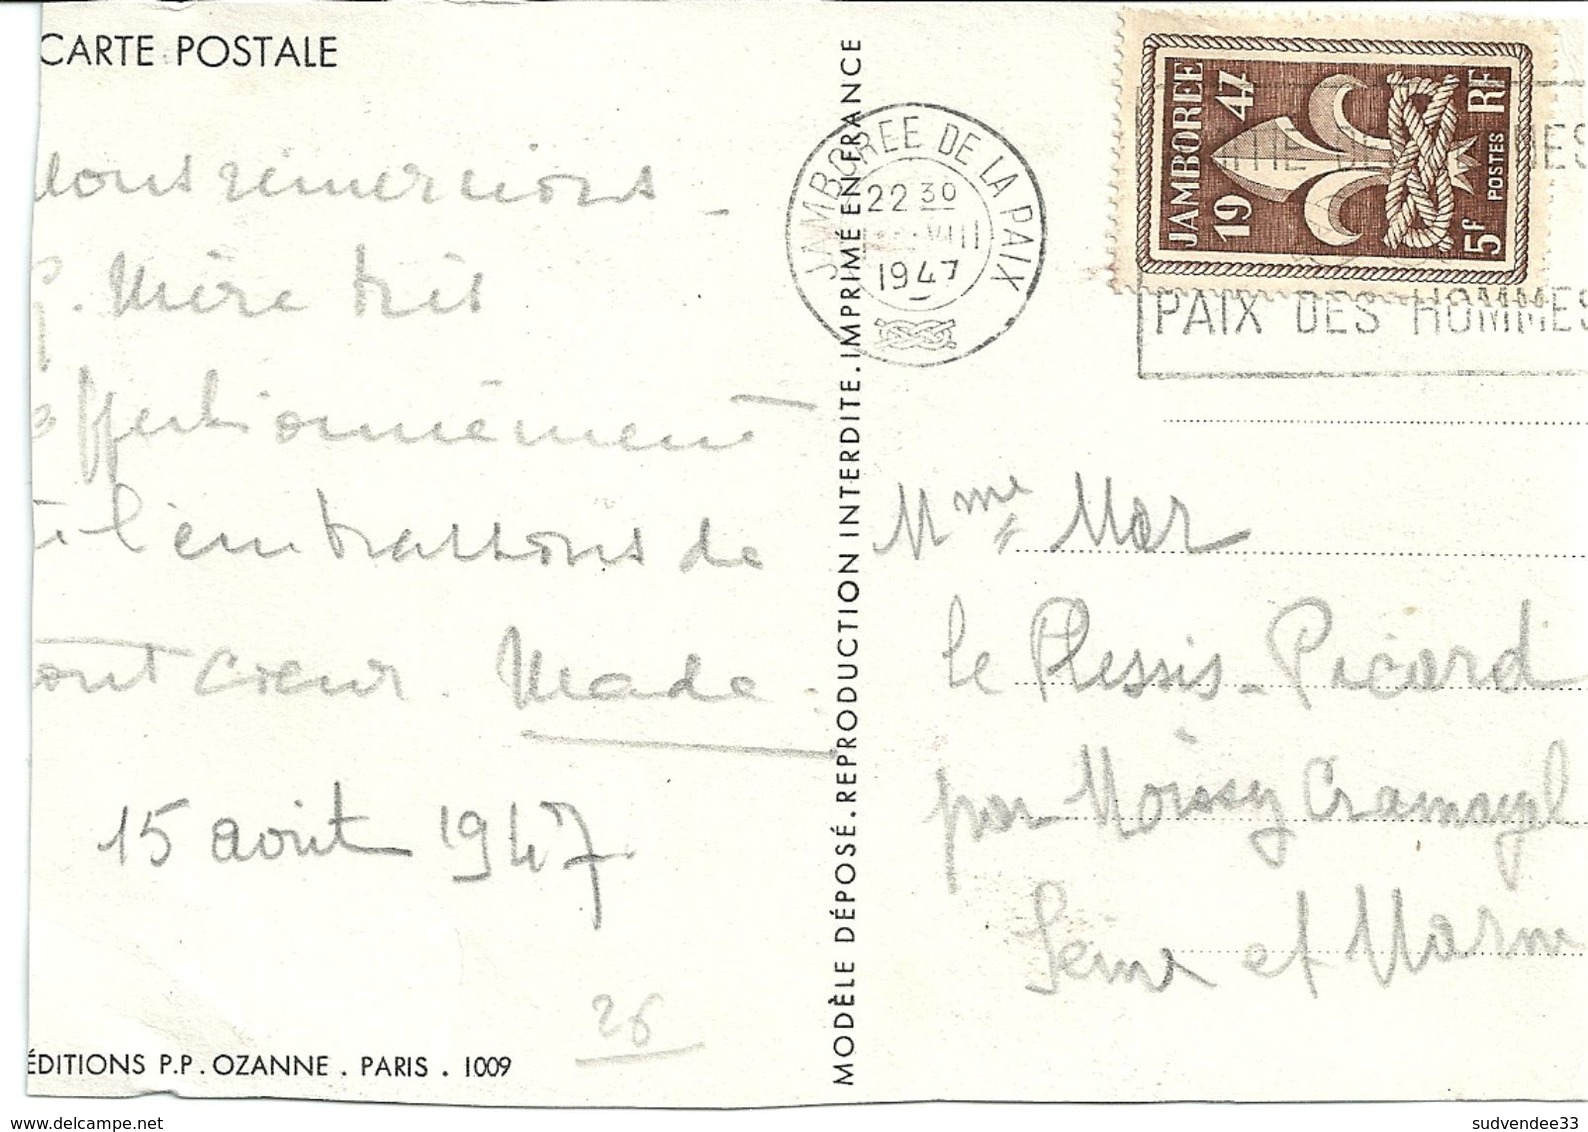 CARTE POSTALE
Nous remercions
G. Mère très
affectionnément
et l'embrassons de
tout cœur. Made.
15 août 1947
26
ÉDITIONS P.P. OZANNE . PARIS . 1009
MODÈLE DÉPOSÉ. REPRODUCTION INTERDITE. IMPRIMÉ EN FRANCE
JAMBOREE DE LA PAIX
22 30
VIII
1947
JAMBOREE
19 47
5f POSTES RF
PAIX DES HOMMES
Mme Mar
le Plessis-Picard
par Moissy Cramayel
Seine et Marne
delcampe.net
sudvendee33